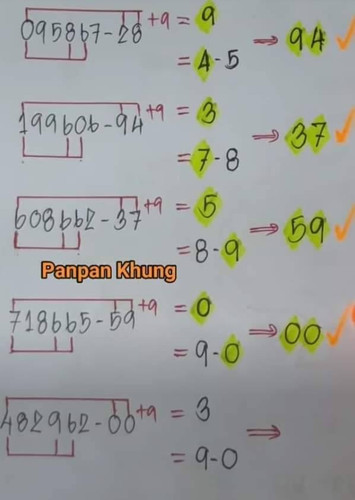 095867-28 +9 = 9
= 4-5 → 94 ✓
199606-94 +9 = 3
= 7-8 → 37 ✓
608662-37 +9 = 5
= 8-9 → 59 ✓
Panpan Khung
718665-59 +9 = 0
= 9-0 → 00 ✓
482962-00 +9 = 3
= 9-0 ⇒